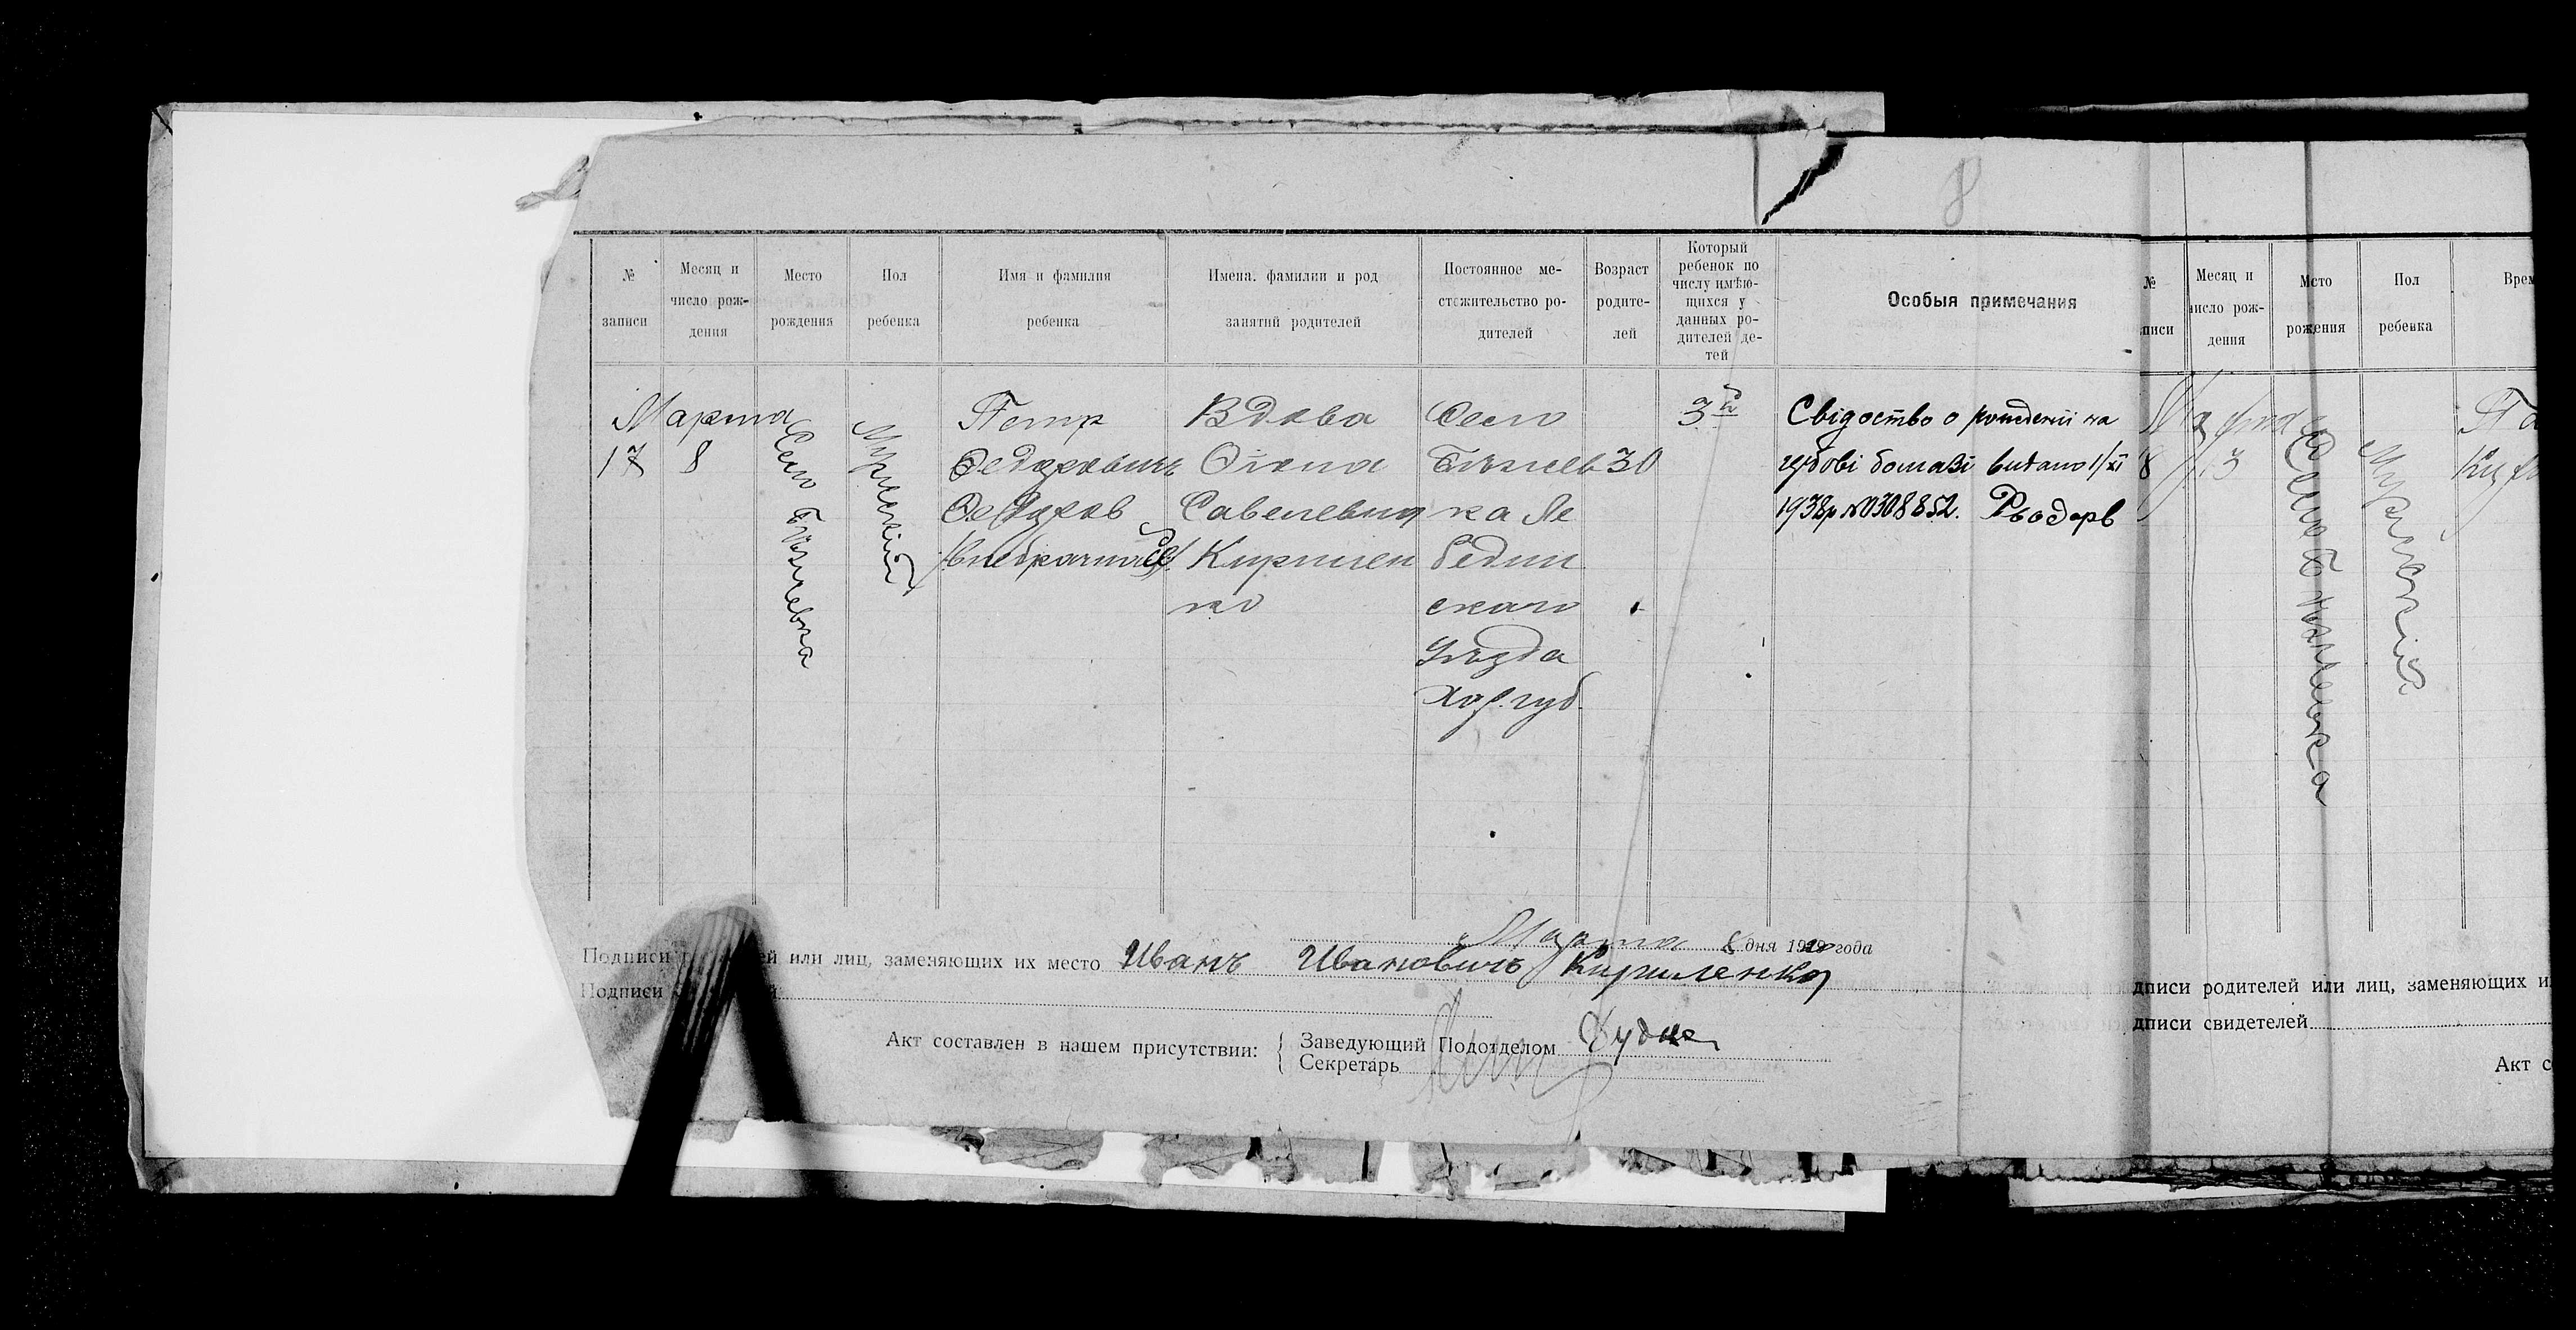 8
№ записи
Месяц и число рождения
Место рождения
Пол ребенка
Имя и фамилия ребенка
Имена. фамилии и род занятий родителей
Постоянное местожительство родителей
Возраст родителей
Который ребенок по числу имѣющихся у данных родителей детей
Особыя примечания
Марта
17 8
Село
Мужской
Петр
Федоровичъ
Федоров
Вдова
Савелевна
Кирилен
ко
Село
ка Ле
бедин
скаго
Уѣзда
Хар. губ.
30
3й
Свідоство о рождении на
видано 1/XI
1938р №0308852.
Марта 8 дня 19 года
Подписи ей или лиц, заменяющих их место Иванъ Ивановичъ Кириленко
Подписи
Акт составлен в нашем присутствии:
Заведующий Подотделом
Секретарь
№ писи
Месяц и число рождения
Место рождения
Пол ребенка
Врем
Марта
8 13
Мужской
дписи родителей или лиц, заменяющих и
дписи свидетелей
Акт с